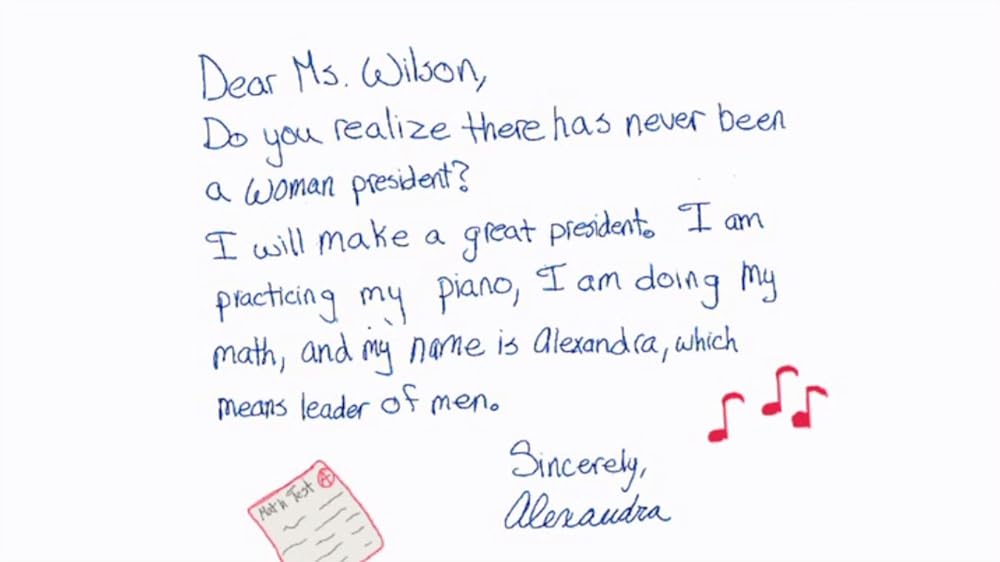 Dear Ms. Wilson,
Do you realize there has never been
a woman president?
I will make a great president. I am
practicing my piano, I am doing my
math, and my name is Alexandra, which
means leader of men.
Sincerely,
Alexandra
Math Test A+